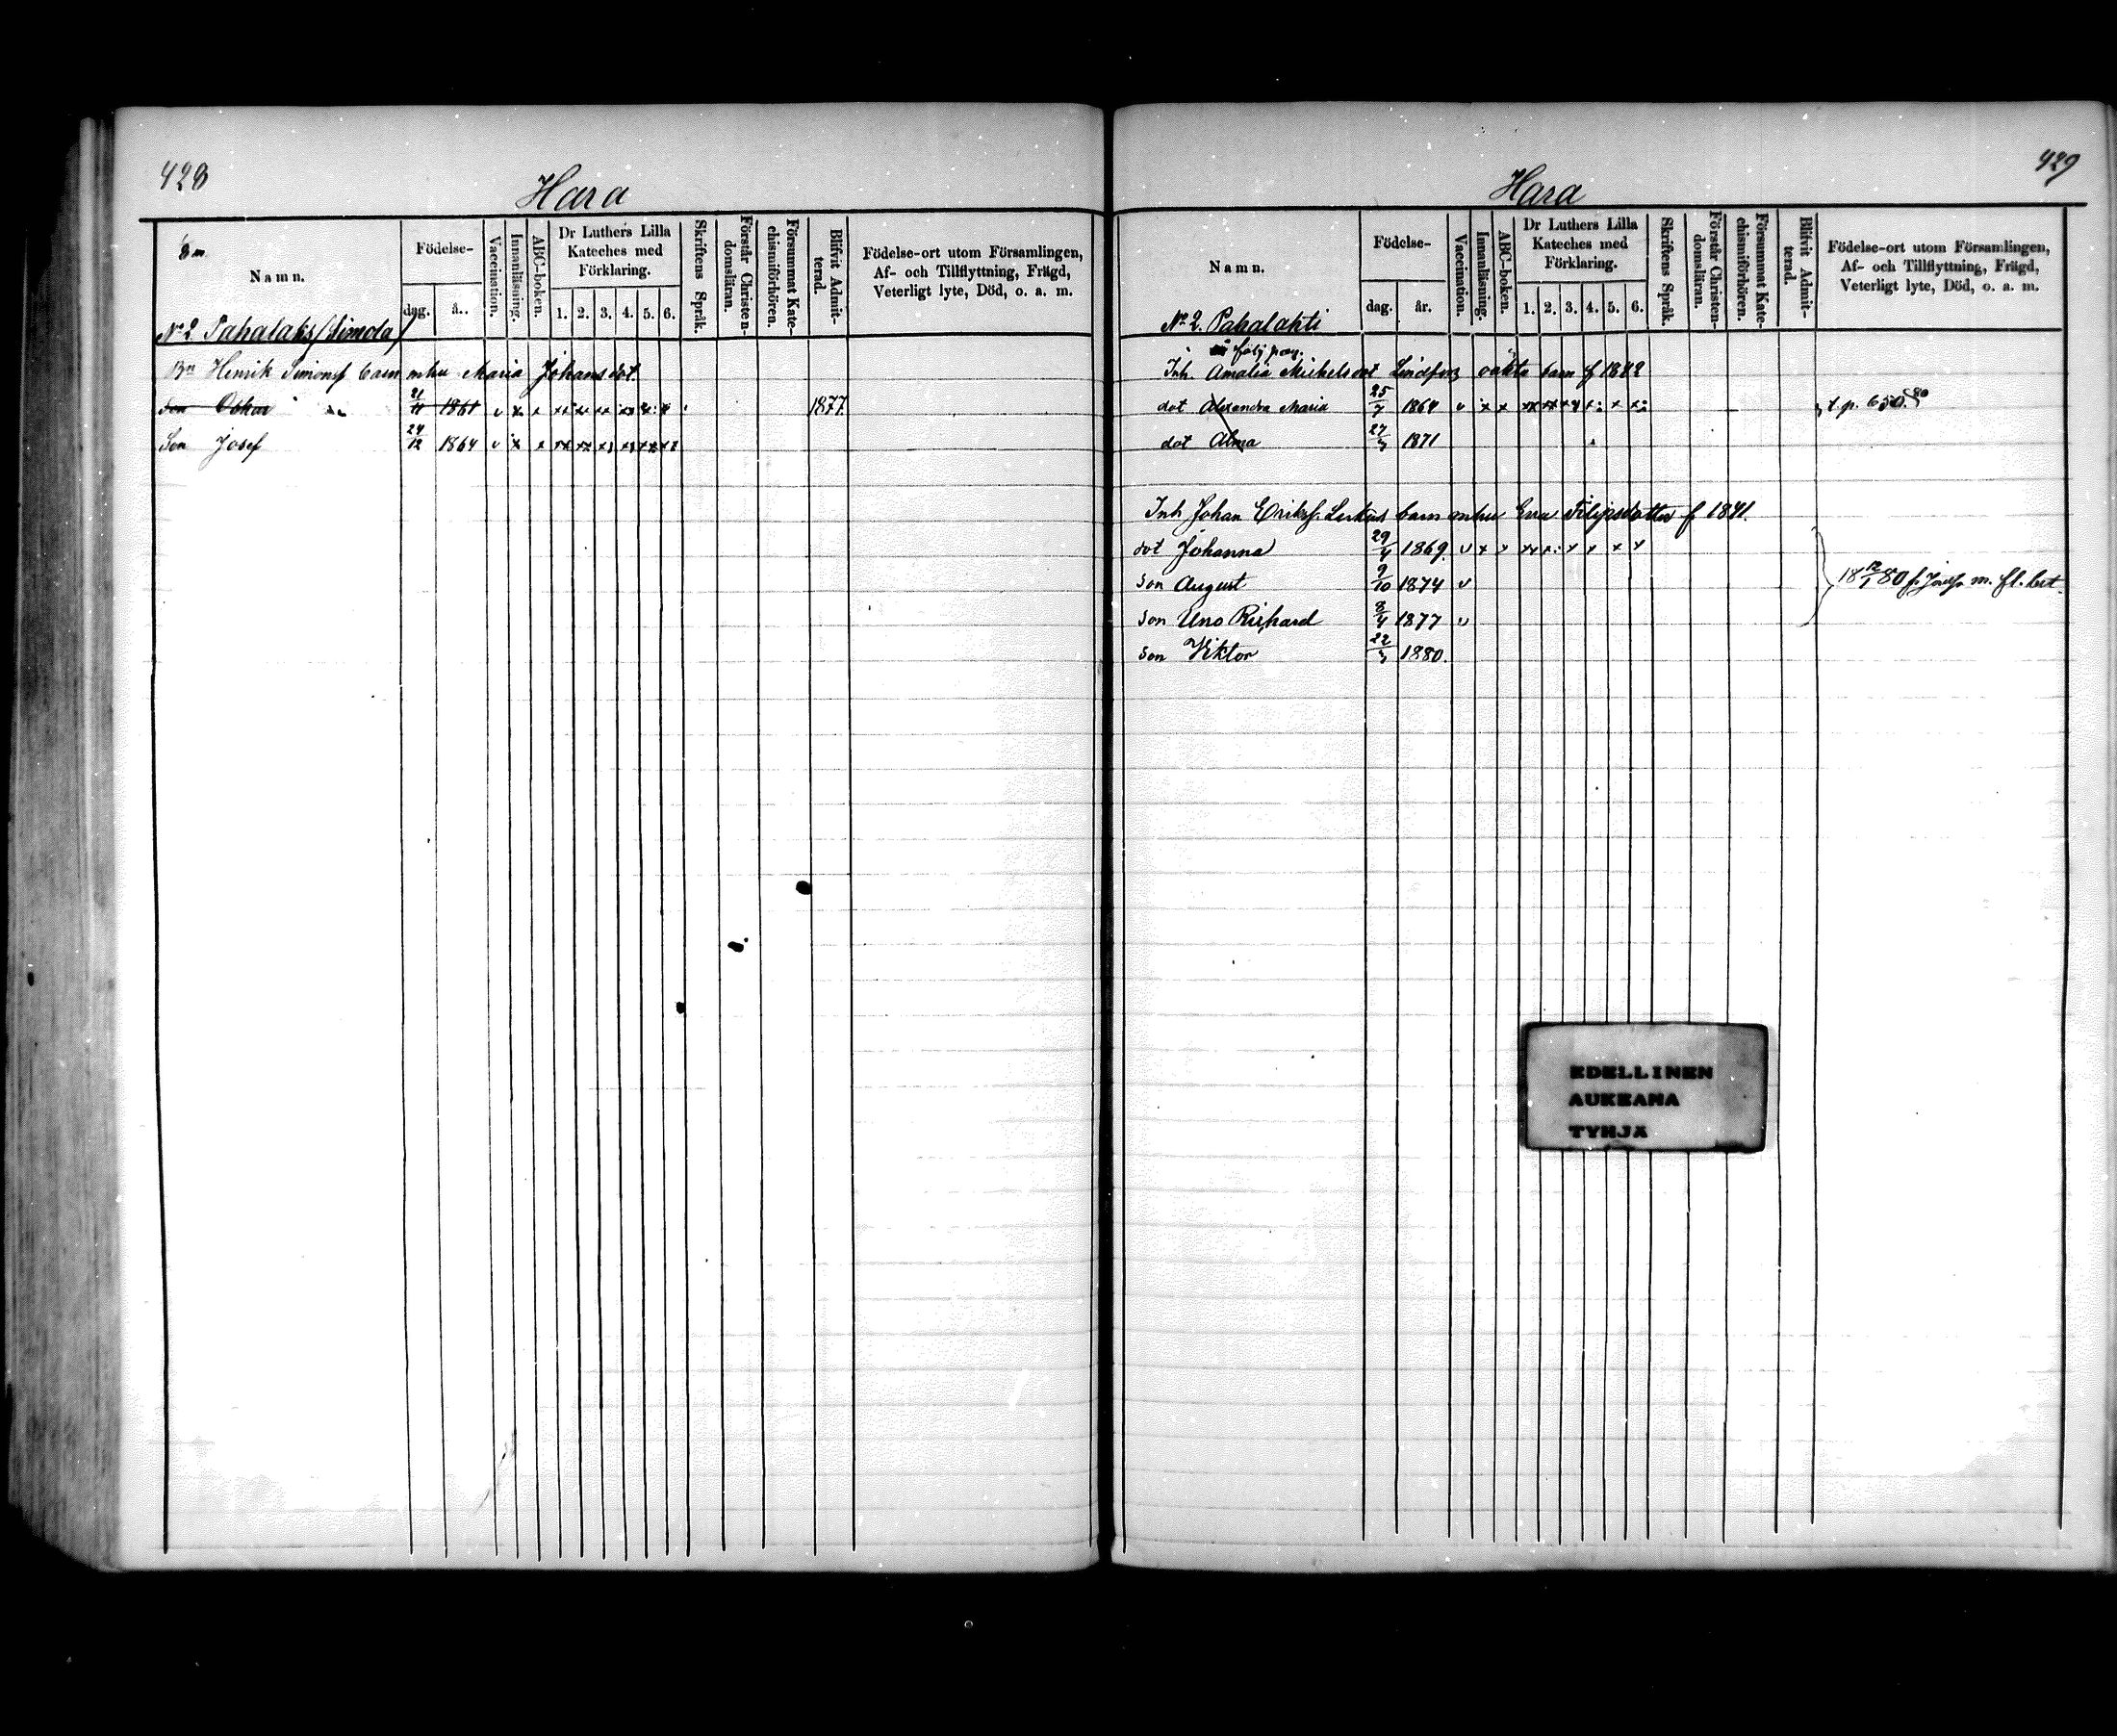 428
Hara
Namn.
Födelse-
dag.
å..
Vaccination.
Innanläsning.
ABC-boken.
Dr Luthers Lilla
Kateches med
Förklaring.
1. 2. 3. 4. 5. 6.
Skriftens Språk.
Förstår Christen-
domsläran.
Försummat Kate-
chismiförhören.
Blifvit Admit-
terad.
Födelse-ort utom Församlingen,
Af- och Tillflyttning, Frägd,
Veterligt lyte, Död, o. a. m.
No 2 Pahalaks (Simola)
Bn Henrik Simonsf barn mhu Maria Johansdot.
Son Oskar 21/11 1861 v x x xx xx xx 1877.
Son Josef 24/12 1864 v x x xx xx
429
Hara
Namn.
Födelse-
dag.
år.
Vaccination.
Innanläsning.
ABC-boken.
Dr Luthers Lilla
Kateches med
Förklaring.
1. 2. 3. 4. 5. 6.
Skriftens Språk.
Förstår Christen-
domsläran.
Försummat Kate-
chismiförhören.
Blifvit Admit-
terad.
Födelse-ort utom Församlingen,
Af- och Tillflyttning, Frägd,
Veterligt lyte, Död, o. a. m.
No 2. Pahalahti
följ pag.
Inh. Amalia Michelsdot Lindfors oäkta barn f 1842
dot Alexandra Maria 25/7 1864 v x x xx xx t.p. 650.80
dot Alma 1871
Inh Johan Eriksf. barn mhu Eva Filipsdotter f 1841.
dot Johanna 29/4 1869. v x x xx x: x x x x
son August 9/10 1874 v m. fl. bet.
son Uno Richard 8/4 1877 v
son Viktor 1880.
EDELLINEN
AUKEAMA
TYHJÄ